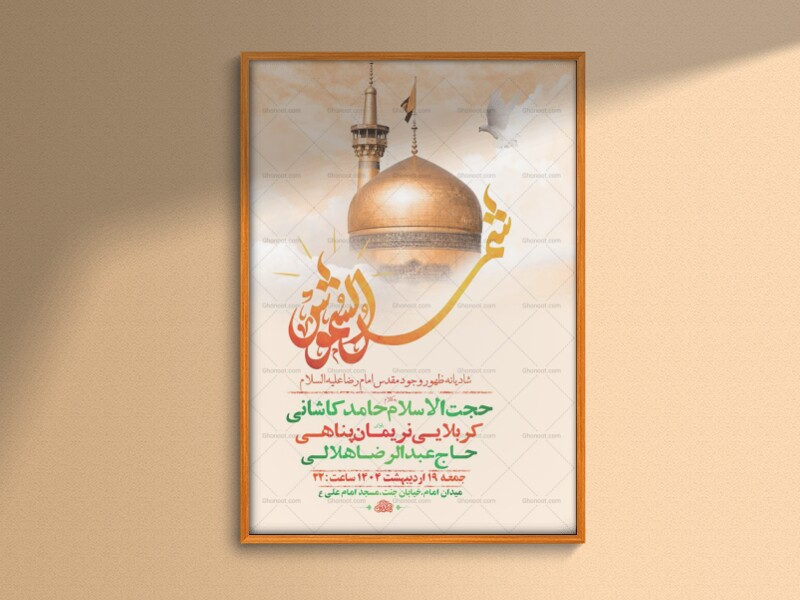 شمس الشموس
شادیانه ظهور وجود مقدس امام رضا علیه السلام
حجت الاسلام حامد کاشانی
کربلایی نریمان پناهی
حاج عبدالرضا هلالی
جمعه ۱۹ اردیبهشت ۱۴۰۴ ساعت: ۲۲
میدان امام، خیابان جنت، مسجد امام علی ع
Ghonoot.com